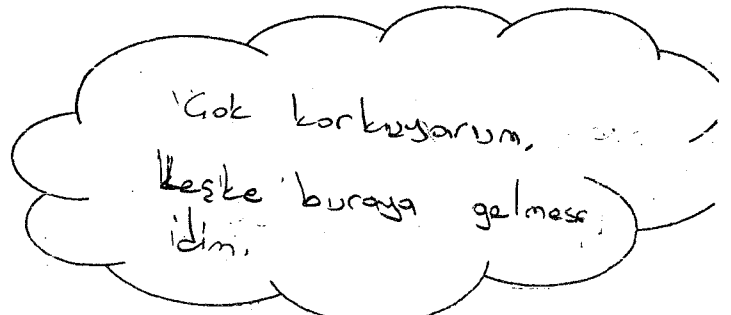 Çok korkuyorum,
keşke buraya gelmese
idim.